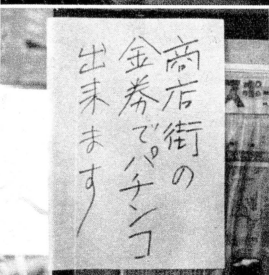 商店街の
金券でパチンコ
出来ます
スポー